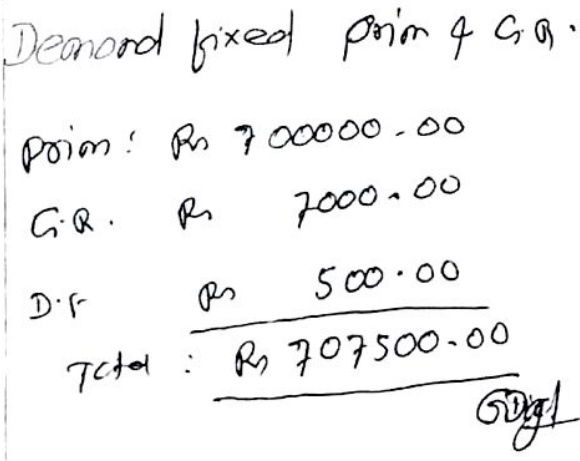 Demand fixed prim & G.R.
prim: Rs 700000.00
G.R. Rs 7000.00
D.F Rs 500.00
Total : Rs 707500.00